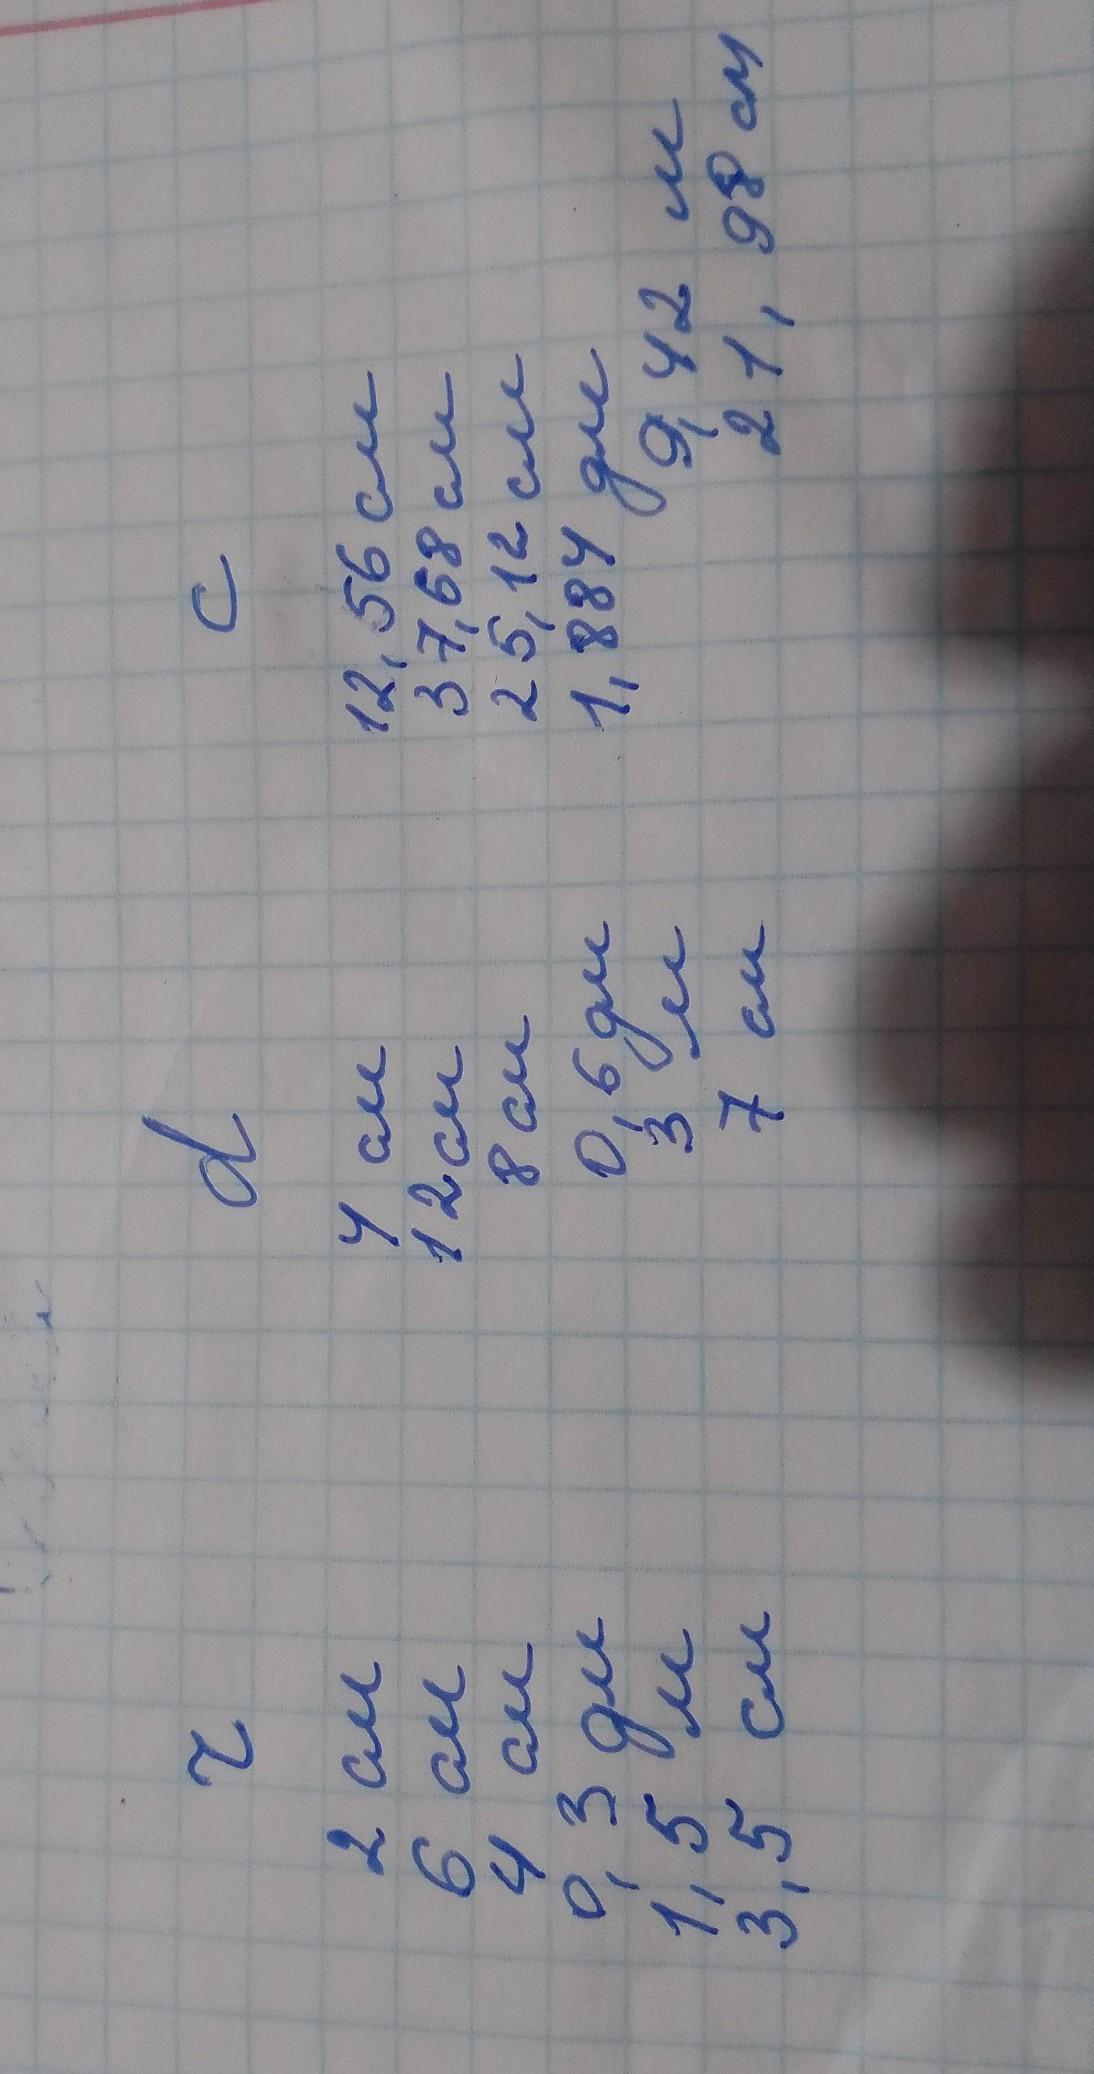 r d c
2 см 4 см 12,56 см
6 см 12 см 37,68 см
4 см 8 см 25,12 см
0,3 дм 0,6 дм 1,884 дм
1,5 м 3 м 9,42 м
3,5 см 7 см 21,98 см